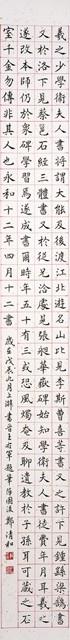 羲之少學衛夫人書將謂大能及後渡江北遊名山見李斯曹喜等書又於許下見鍾繇梁鵠書
又於洛下見蔡邕石經三體又於從兄洽處見張昶華嶽碑始知學衛夫人書徒費年月耳羲之
遂改本師仍於眾碑學習焉遂成書爾時年五十有三或恐風燭奄及聊遺教於子孫耳可藏之石
室千金勿傳非其人也永和十二年四月十二書
歲在戊辰九月上澣書晉王右軍題筆陣圖後 鄭清和